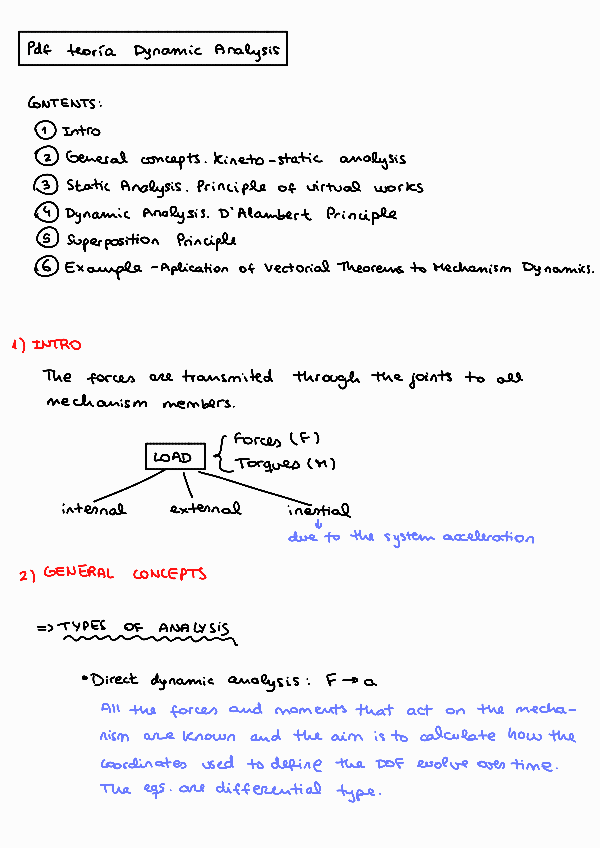 Pdf teoría Dynamic Analysis
CONTENTS:
1 Intro
2 General concepts. Kineto-static analysis
3 Static Analysis. Principle of virtual works
4 Dynamic Analysis. D'Alambert Principle
5 Superposition Principle
6 Example - Aplication of Vectorial Theorems to Mechanism Dynamics.
1) INTRO
The forces are transmited through the joints to all
mechanism members.
LOAD { Forces (F)
Torques (M)
internal external inertial
↓
due to the system acceleration
2) GENERAL CONCEPTS
=> TYPES OF ANALYSIS
• Direct dynamic analysis: F → a
All the forces and moments that act on the mecha-
nism are known and the aim is to calculate how the
coordinates used to define the DOF evolve over time.
The eqs. are differential type.